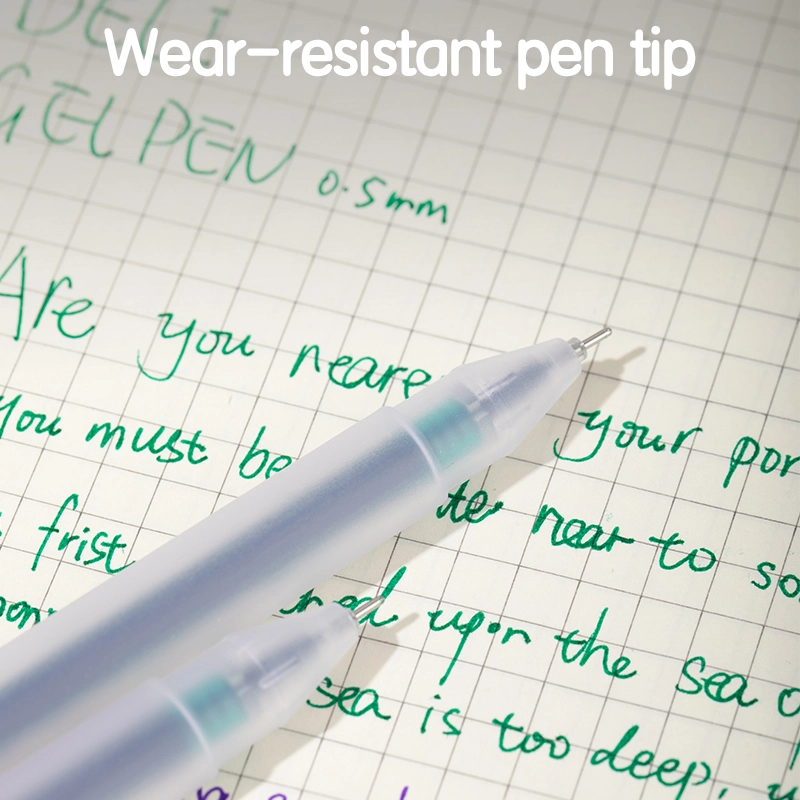 Wear-resistant pen tip
DELI
GEL PEN 0.5mm
Are you neare your por
You must be te near to so
frist
ned upon the sea o
sea is too deep,